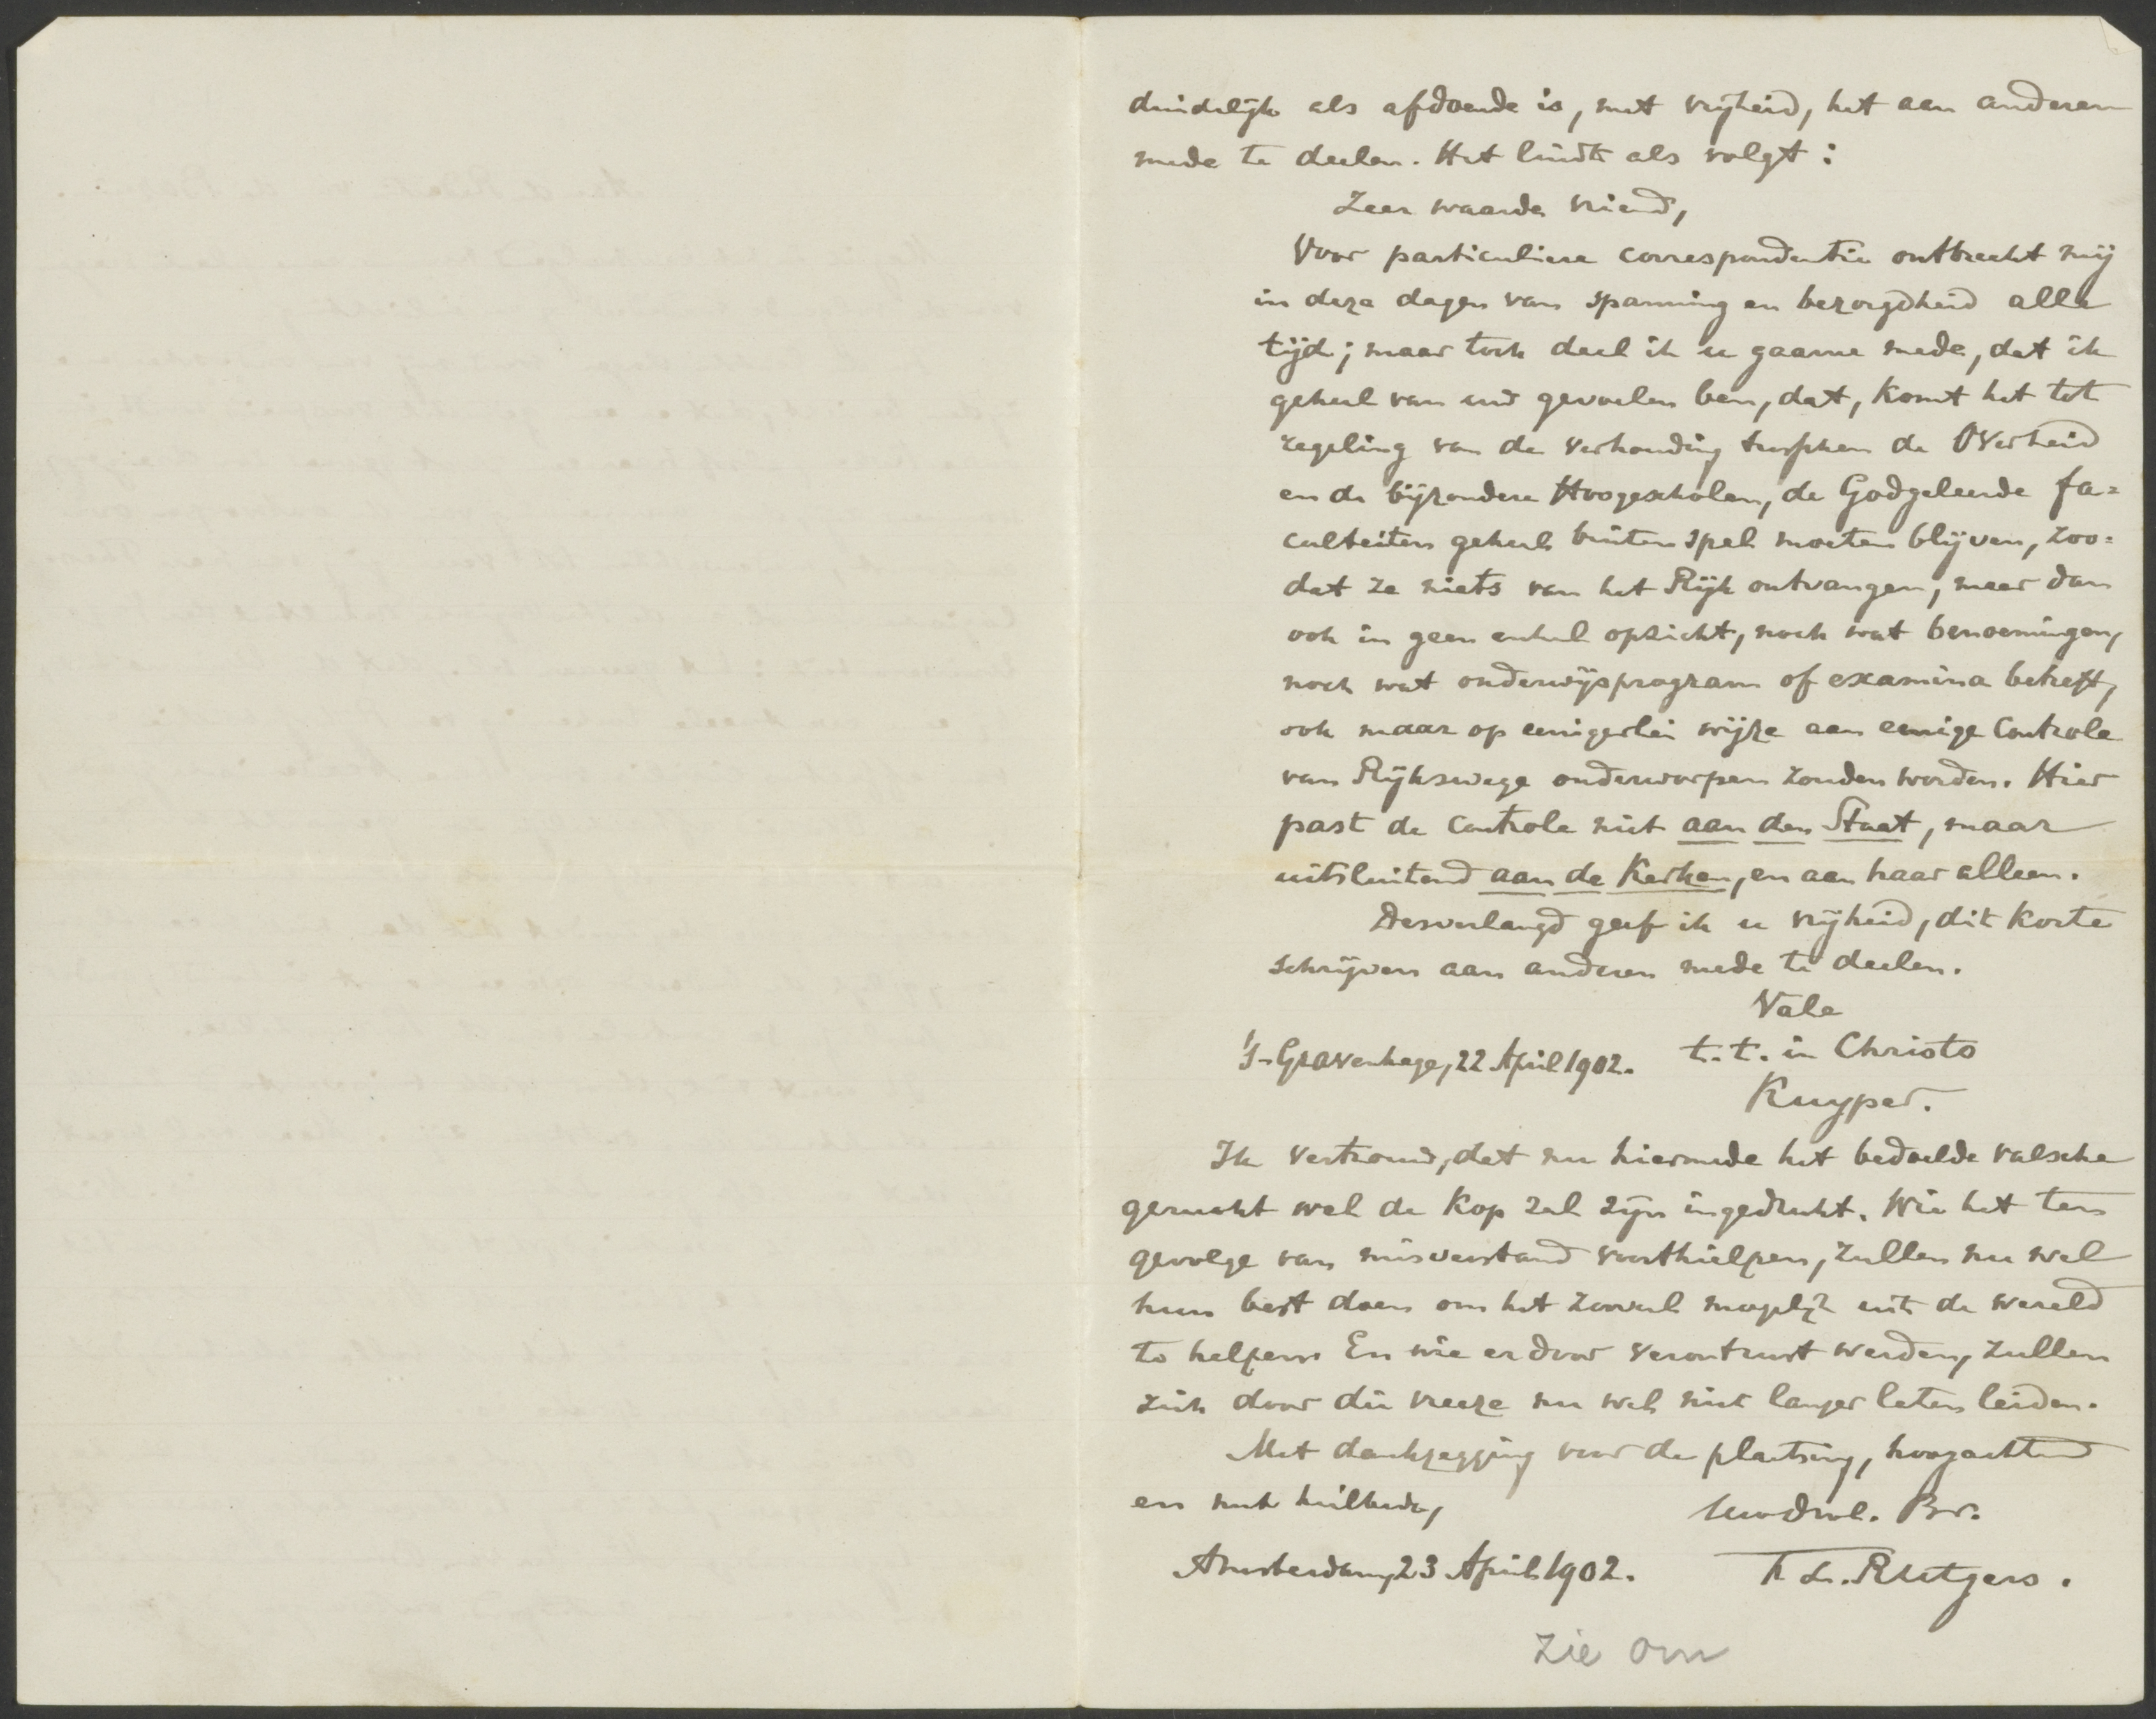 duidelijk als afdoende is, met vrijheid, het aan anderen
mede te deelen. Het luidt als volgt:
Zeer waarde vriend,
Voor particuliere correspondentie ontbreekt mij
in deze dagen van spanning en bezorgdheid alle
tijd; maar toch deel ik u gaarne mede, dat ik
geheel van uw gevoelen ben, dat, komt het tot
regeling van de verhouding tusschen de Overheid
en de bijzondere Hoogescholen, de Godgeleerde fa=
culteiten geheel buiten spel moeten blijven, zoo=
dat ze niets van het Rijk ontvangen, maar dan
ook in geen enkel opzicht, noch wat benoemingen,
noch wat onderwijsprogram of examina betreft,
ook maar op eenigerlei wijze aan eenige Controle
van Rijkswege onderworpen zouden worden. Hier
past de Controle niet aan den Staat, maar
uitsluitend aan de Kerken, en aan haar alleen.
Desverlangd geef ik u vrijheid, dit korte
schrijven aan anderen mede te deelen.
Vale
's-Gravenhage, 22 April 1902. t.t. in Christo
Kuyper.
Ik vertrouw, dat nu hiermede het bedoelde valsche
gerucht wel de kop zal zijn ingedrukt. Wie het ten
gevolge van misverstand voorthielpen, zullen nu wel
hun best doen om het zooveel mogelijk uit de wereld
te helpen. En wie er door verontrust werden, zullen
zich door die vreeze nu wel niet langer laten leiden.
Met dankzegging voor de plaatsing, hoogachtend
en met heilbede,
Uwdw. Br.
Amsterdam, 23 April 1902. F. L. Rutgers.
Zie om